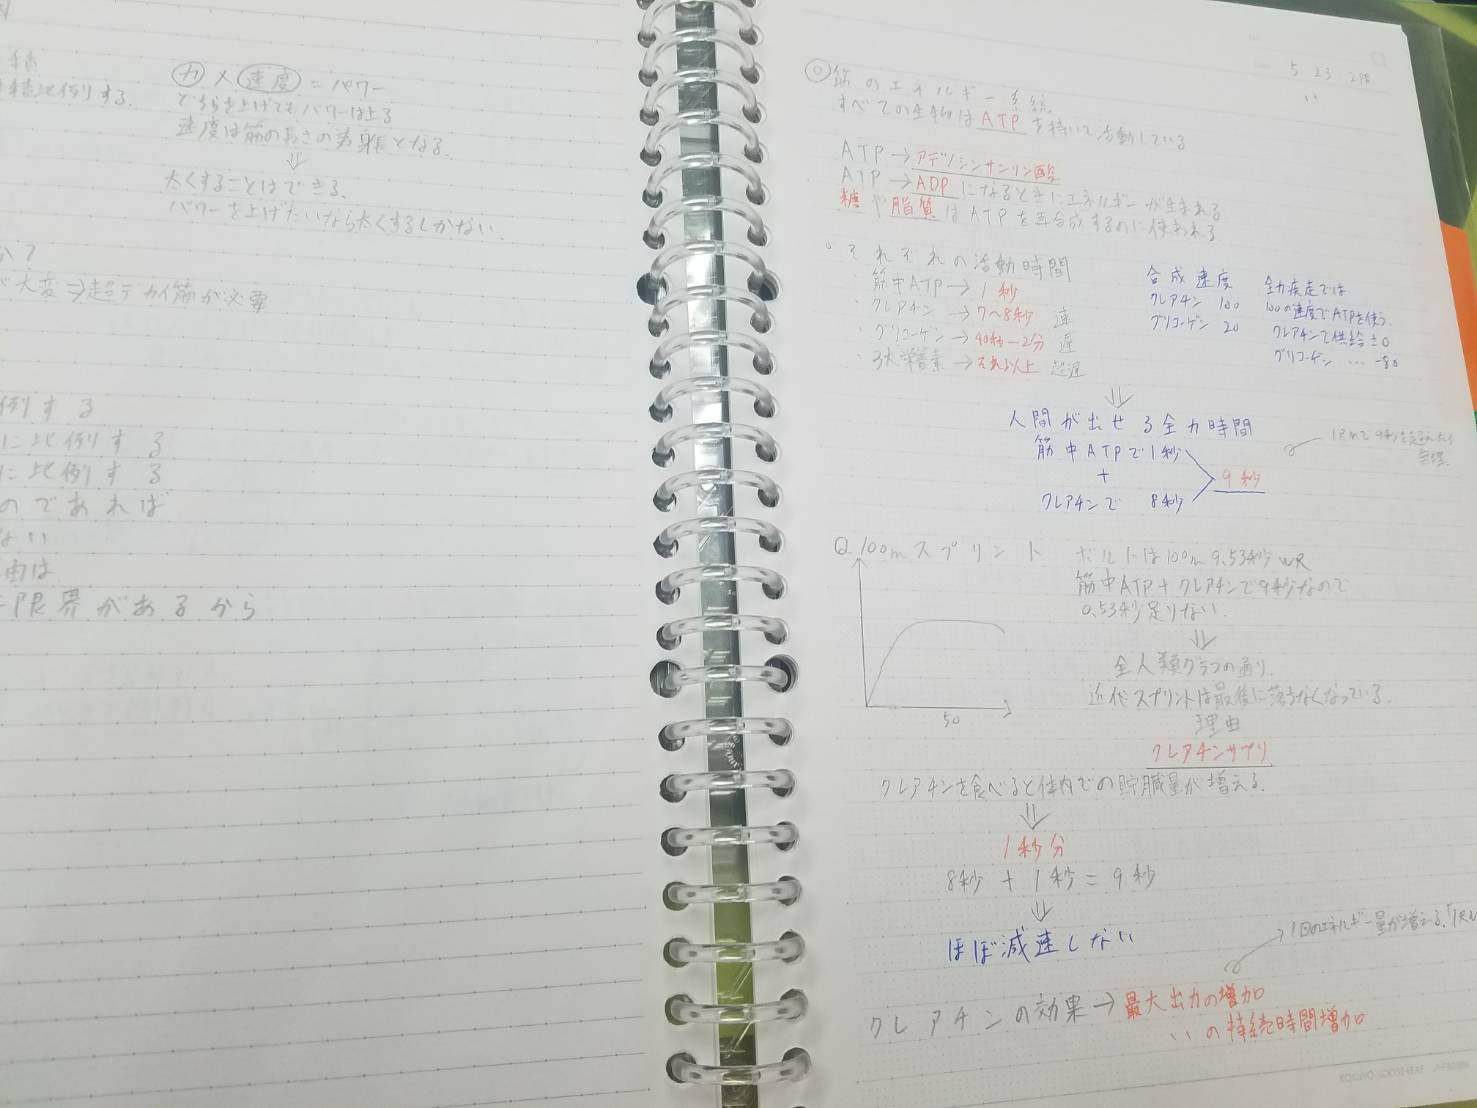 積
積に比例する.
力 × 速度 = パワー
どちらを上げてもパワーは上る
速度は筋の長さの為身長となる.
⇓
太くすることはできる.
パワーを上げたいなら太くするしかない.
か?
大変⇒超デカイ筋が必要
例する
に比例する
に比例する
のであれば
ない
由は
限界があるから
5 23 2限
◎筋のエネルギー系統
すべての生物はATPを持いて活動している
ATP→アデノシンサンリン酸
ATP→ADPになるときにエネルギーが生まれる
糖や脂質はATPを再合成するのに使われる
。それぞれの活動時間
・筋中ATP→1秒
・クレアチン→7~8秒 速
・グリコーゲン→40秒-2分 遅
・3大栄養素→それ以上 超遅
合成速度
クレアチン 100
グリコーゲン 20
全力疾走では
100の速度でATPを使う.
クレアチンで供給±0
グリコーゲン … -80
⇓
人間が出せる全力時間
筋中ATPで1秒
+
クレアチンで 8秒
9秒
Q.100mスプリント
50
ボルトは100m 9.53秒WR
筋中ATP+クレアチンで9秒なので
0.53秒足りない.
⇓
全人類グラフの通り.
近代スプリントは最後に落ちなくなっている.
理由
クレアチンサプリ
クレアチンを食べると体内での貯臓量が増える.
⇓
1秒分
8秒+1秒=9秒
⇓
ほぼ減速しない
→1回のエネルギー量が増える.
クレアチンの効果→最大出力の増加
〃の持続時間増加